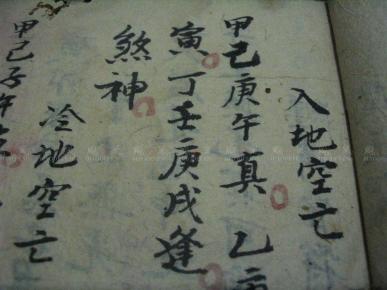 入地空亡
甲己庚午真 乙
寅丁壬庚戌逢
煞神
冷地空亡
甲己子午